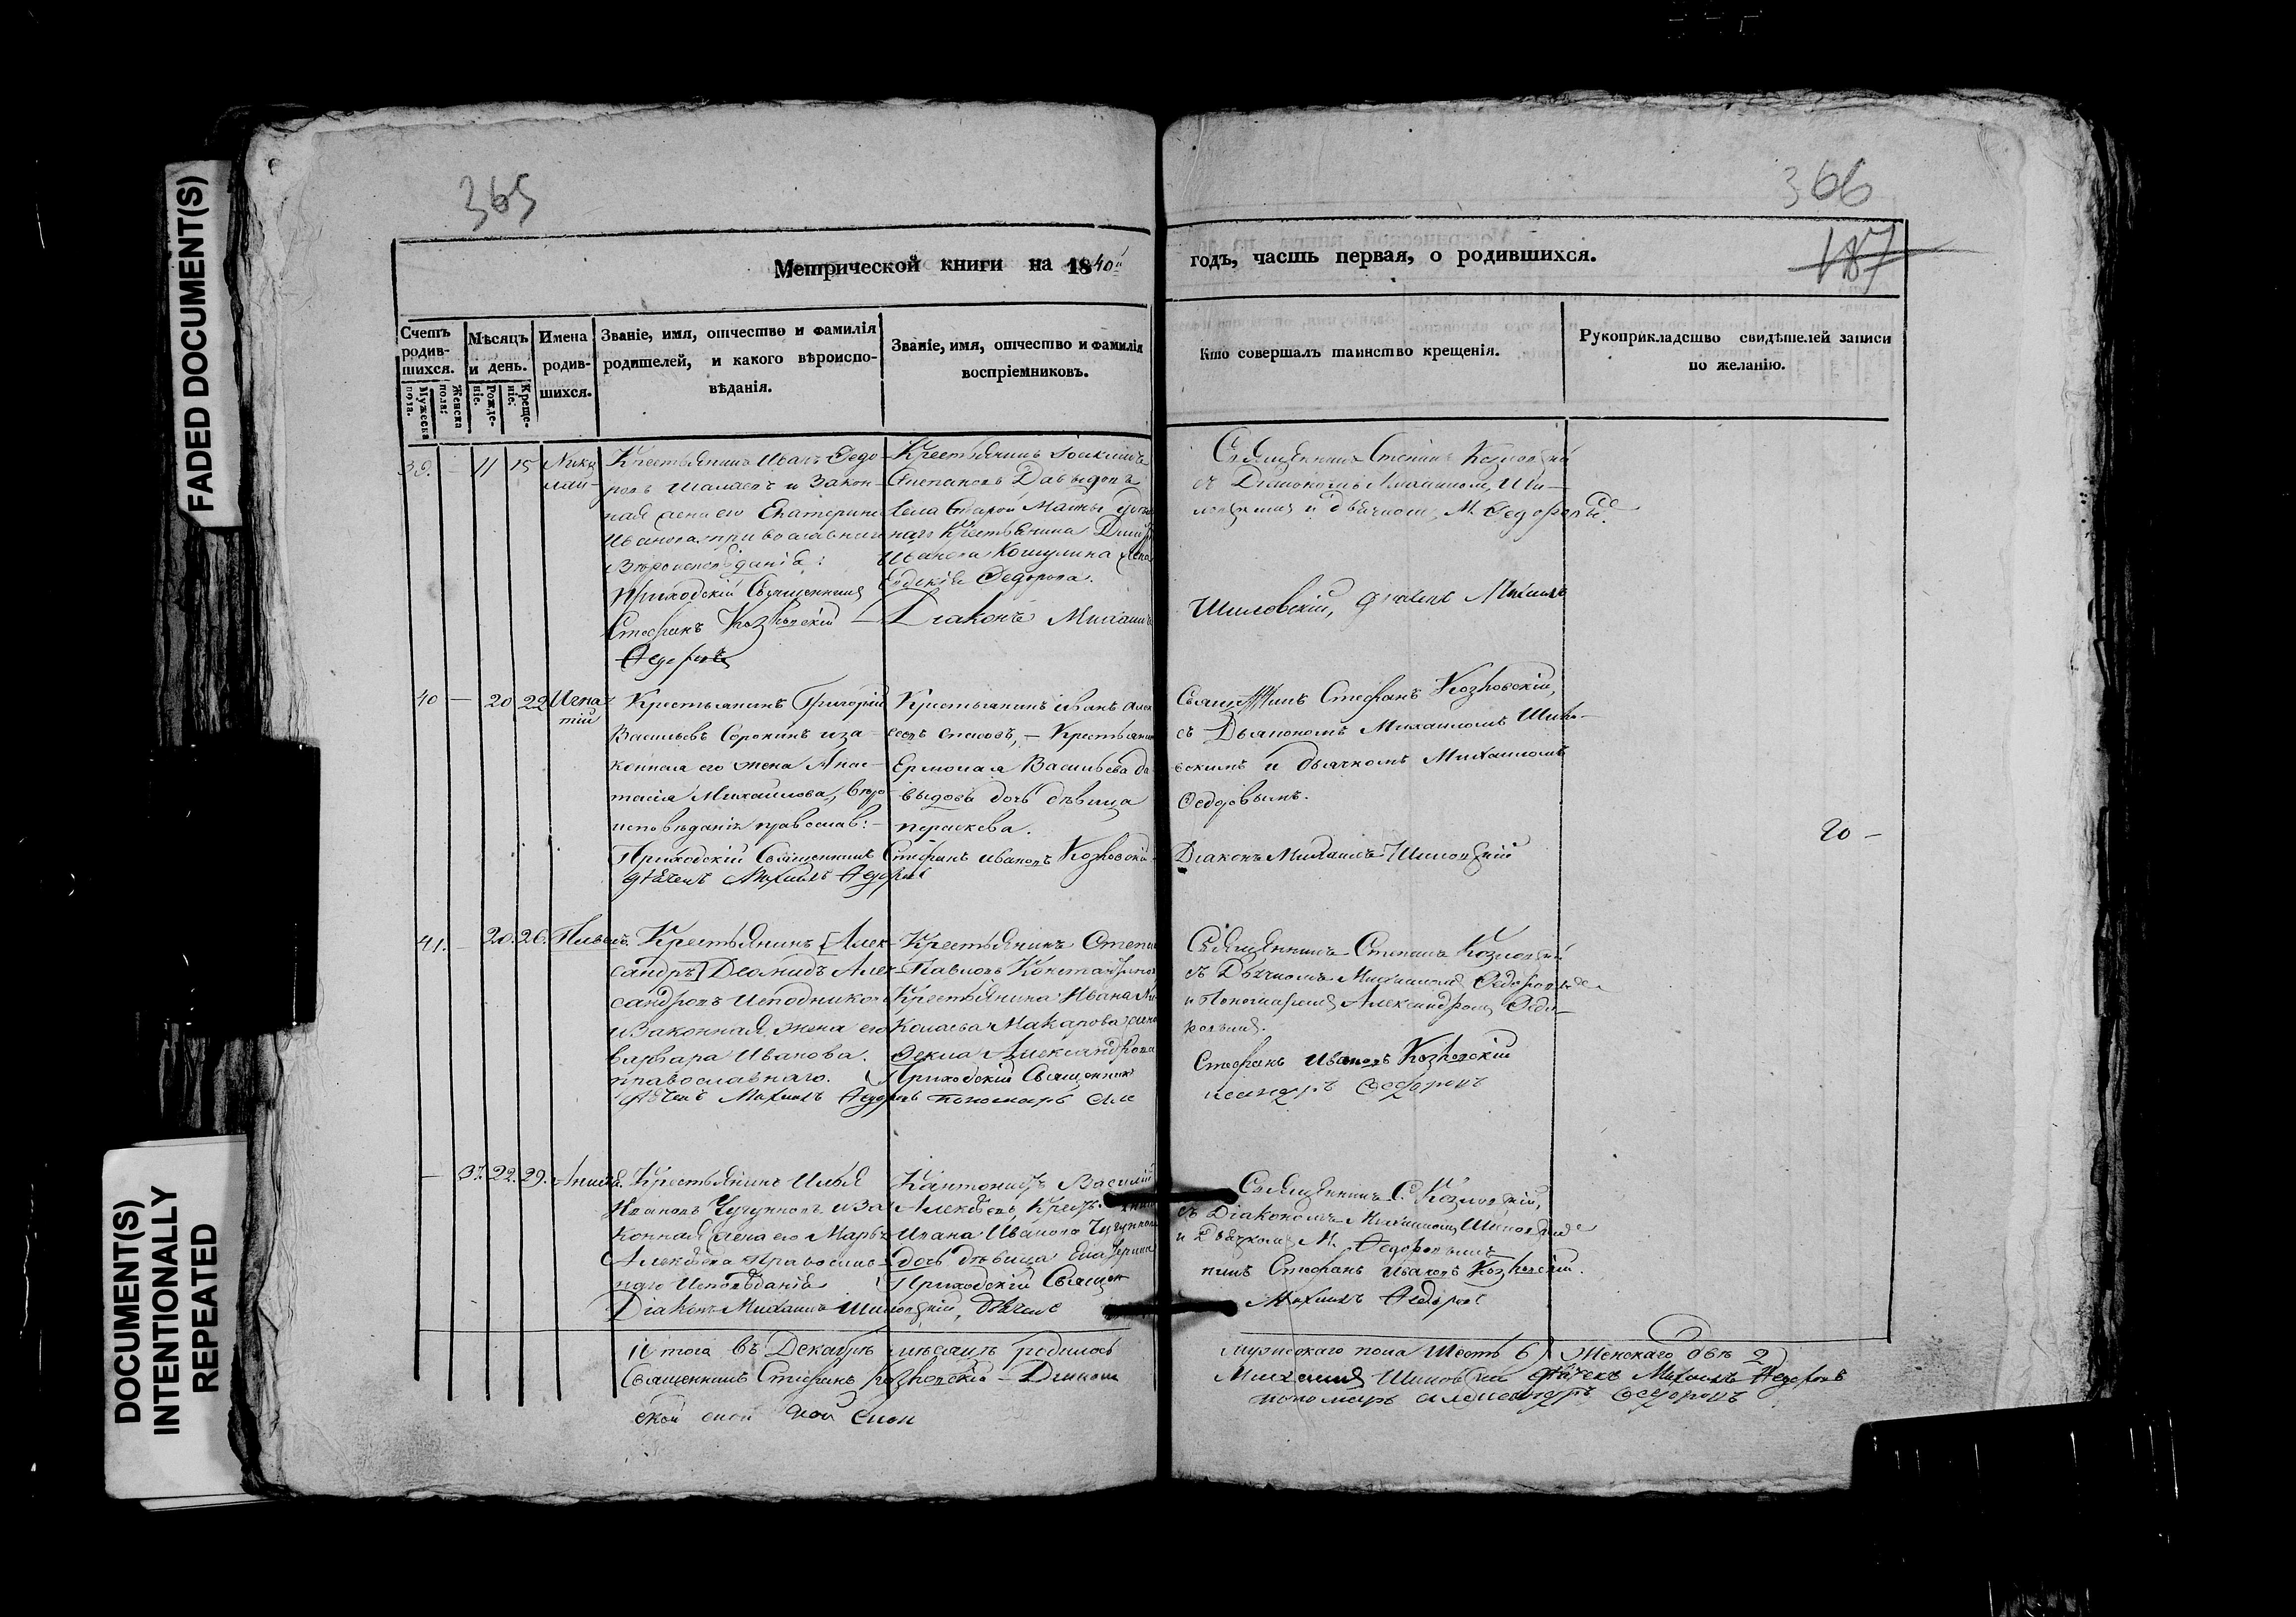 FADED DOCUMENT(S)
DOCUMENT(S)
INTENTIONALLY
REPEATED
365
366
187
Метрической книги на 1840й
годъ, часть первая, о родившихся.
Счетъ родив-шихся.
Мужеска пола.
Женска пола.
Мѣсяцъ и день.
Рожде-ніе.
Креще-ніе.
Имена родив-шихся.
Званіе, имя, отчество и фамилія
родителей, и какого вѣроиспо-
вѣданія.
Званіе, имя, отчество и фамилія
воспріемниковъ.
Кто совершалъ таинство крещенія.
Рукоприкладство свидѣтелей записи
по желанію.
39. – 11 15 Нико
лай
Крестьянинъ Иванъ Федо-
ровъ и Закон-
ная жена его Екатерина
Иванова православнаго
вѣроисповѣданія:
Приходскій Священникъ
Стефанъ Козловскій
Федоровъ
Степановъ Давыдовъ
наго Крестьянина
Иванова жена
Федорова.
Діаконъ Михаилъ
Священникъ Стефанъ Козловскій
съ Діакономъ Михаиломъ Ши-
ловскимъ и дьячкомъ М. Федоровы.
Шиловскій, дьячекъ Михаилъ
40 – 20 22 Игна
тій
Крестьянинъ Григорій
Васильевъ Сорокинъ и за-
конная его жена Анас-
тасія Михайлова, вѣро-
исповѣданія православ:
Приходскій Священникъ Стефанъ Ивановъ Козловскій
дьячекъ Михаилъ Федоровъ
Крестьянинъ Иванъ Алек
сѣевъ – Крестьянина
Ермолая Васильева Да
выдова дочь дѣвица
Параскева.
Стефанъ Козловскій,
съ Дьякономъ Михаиломъ Шило-
вскимъ и дьячкомъ Михаиломъ
Федоровымъ.
Діаконъ Михаилъ Шиловскій
20 –
41. – 20. 26. Павелъ.
Крестьянинъ [Алек-
сандръ] Леонидъ Алек-
сандровъ Исподников
и Законная жена его
Варвара Иванова.
православнаго.
дьячекъ Михаилъ Федоровъ пономарь Але
Крестьянинъ Степанъ
Павловъ Константинов
Крестьянина Ивана Ни
колаева Макарова жена
Фекла Александрова
Приходскій Священникъ
Священникъ Стефанъ Козловскій
съ Дьячкомъ Михаиломъ Федоровы
и Пономаремъ Александромъ Федо-
ровымъ.
Стефанъ Ивановъ Козловскій
ксандръ Федоровъ
– 37. 22. 29.
Крестьянинъ Илья
Ивановъ Чугуновъ и За
конная жена его Марья
Алексѣева Православ-
наго Исповѣданія
Діаконъ Михаилъ Шиловскій, дьячекъ
Кантонистъ Василій
Алексѣевъ, Крест.
Ивана Иванова Чугунова
дочь дѣвица Екатерина
Приходскій Священ
Священникъ С. Козловскій,
съ Діакономъ Михаиломъ Шиловски
и Дьячкомъ М. Федоровымъ
никъ Стефанъ Ивановъ Козловскій.
Михаилъ Федоровъ
Итого въ Декабрѣ мѣсяцѣ родилось
мужескаго пола шесть 6) Женскаго двѣ 2)
Священникъ Стефанъ Козловскій – Діаконъ
Михаилъ Шиловскій дьячекъ Михаилъ Федоровъ
пономарь Александръ Федоровъ